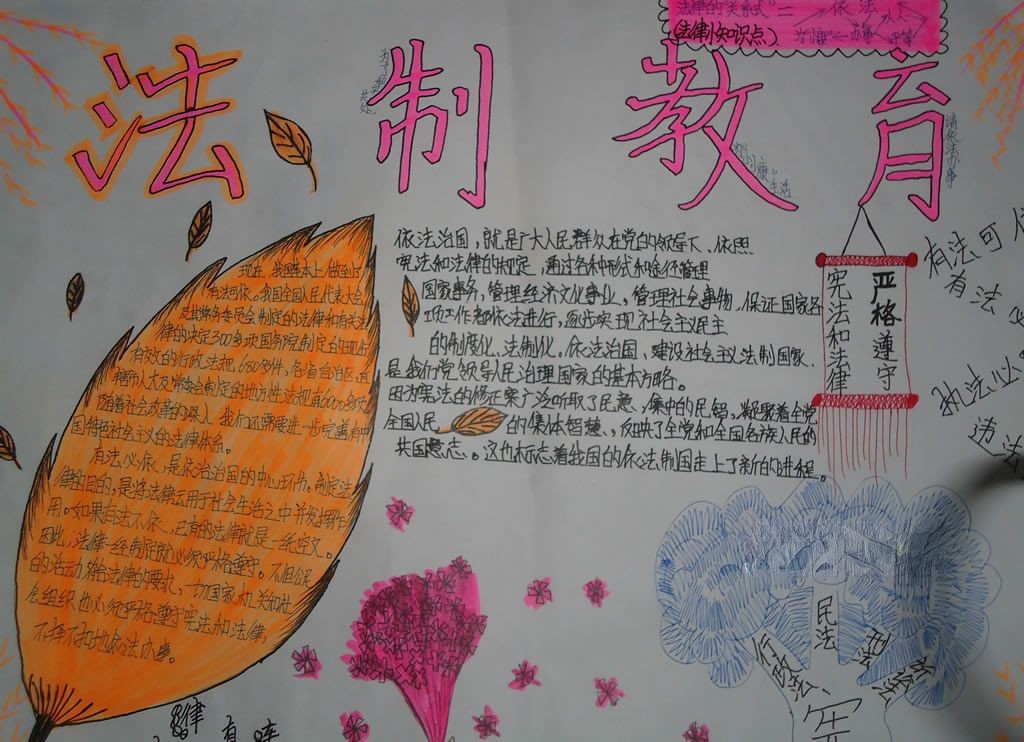 法律的"关系式"二
依法
(法律小知识点)
办事
法制教育
请依法办事
"小康"生活
现在,我国基本上做到了
有法可依。我国全国人民代表大会
及其常务委员会制定的法律和有关法
律的决定300多项国务院制定的现行
有效的行政法规680多件,各省自治区直
辖市人大及常委会制定的地方性法规有6000多项
随着社会改革的深入,我们还需要进一步完善有中
国特色社会主义的法律体系。
有法必依,是依法治国的中心环节。制定法
律的目的,是将法律运用于社会生活之中并发挥作
用。如果有法不依,已有的法律就是一纸空文。
因此,法律一经制定就必须严格遵守。不但公民
的活动符合法律的要求,一切国家机关和社
会组织也必须严格遵守宪法和法律,
不择不扣地依法办事。
依法治国,就是广大人民群众在党的领导下、依照
宪法和法律的规定,通过各种形式和途径管理
国家事务,管理经济文化事业,管理社会事物,保证国家各
项工作都依法进行,逐步实现社会主义民主
的制度化、法制化。依法治国,建设社会主义法制国家,
是我们党领导人民治理国家的基本方略。
因为宪法的修正案广泛听取了民意,集中的民智,凝聚着全党
全国人民的集体智慧、,反映了全党和全国各族人民的
共国意志、。这也标志着我国的依法制国走上了新的进程。
严格遵守
宪法和法律
有法可依
有法必
执法必
违法
行政法
民法
刑法
律有